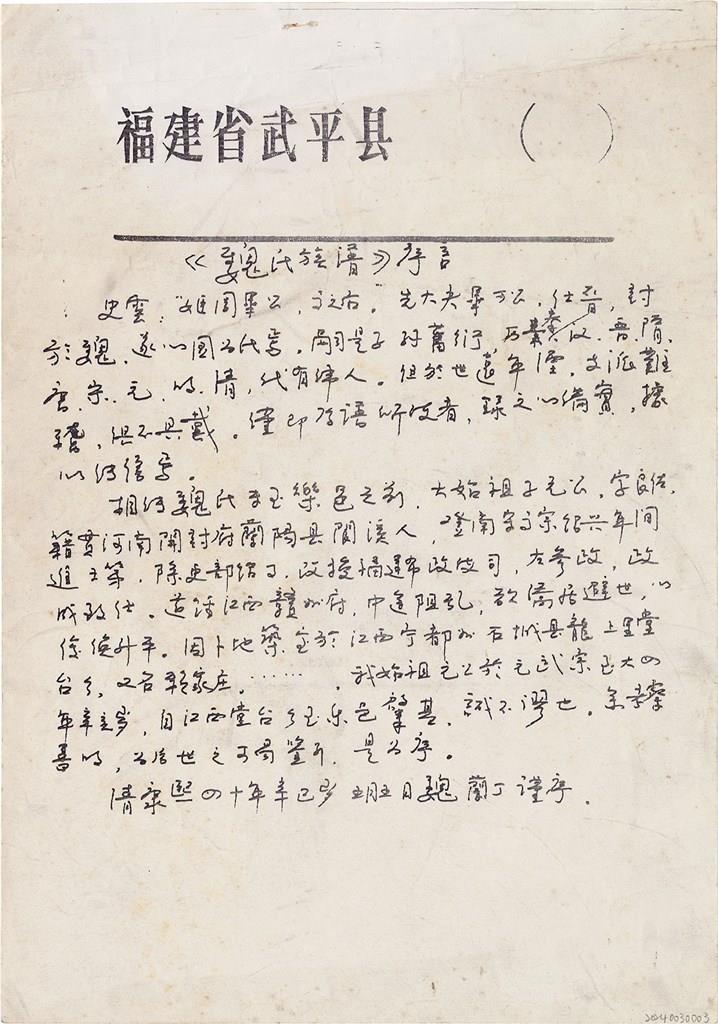 福建省武平县 ( )
《魏氏族谱》序言
史云：“姬周毕公，之右”。先大夫毕万公，仕晋，封
於魏，遂以国为氏焉。嗣是子孙蕃衍，历秦、汉、晋、隋、
唐、宋、元、明、清，代有伟人。但於世远年湮，支派難
稽，俱不具載。僅即存譜所及者，録之以備實，據
以待徵焉。
相傳魏氏至玉樂邑之前，大始祖子元公，字良佐，
籍贯河南開封府蘭陽县閣溪人，登南宋高宗绍兴年间
進士第，除吏部给事，改授福建布政使司，左参政，政
成致仕。道經江西贛州府，中途阻乱，欲寓居避世，以
俟升平。因卜地築室於江西宁都州石城县龍上里堂
台乡，又名郭家庄。……。我始祖元公於元武宗至大四
年辛亥岁，自江西堂台乡至乐邑肇基，誠不謬也。
書明，为后世之可易鉴尔，是为序。
清康熙四十年辛巳岁五月五日魏蘭丁谨序。
2024030003